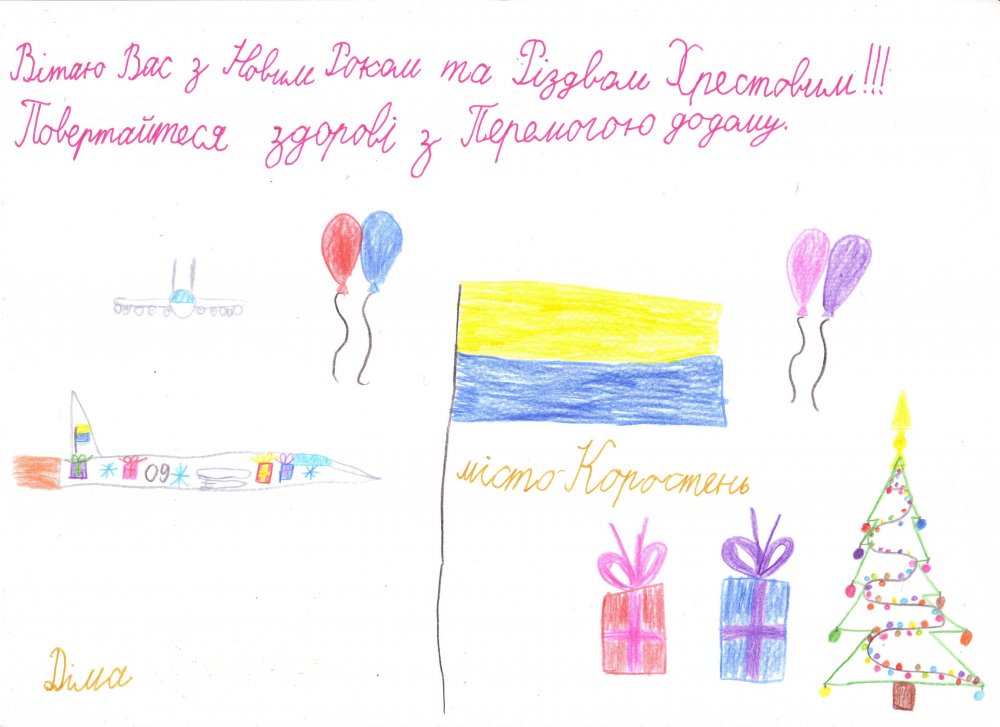 Вітаю Вас з Новим Роком та Різдвом Хрестовим!!!
Повертайтеся здорові з Перемогою додому.
09
місто Коростень
Діма